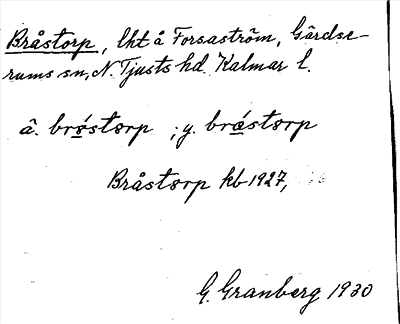 Bråstorp, lht å Forsaström, Gärdse-
rums sn, N. Tjusts hd. Kalmar l.
ä. brǿstorp ; y. brǽstorp
Bråstorp kb 1927,
G. Granberg 1930